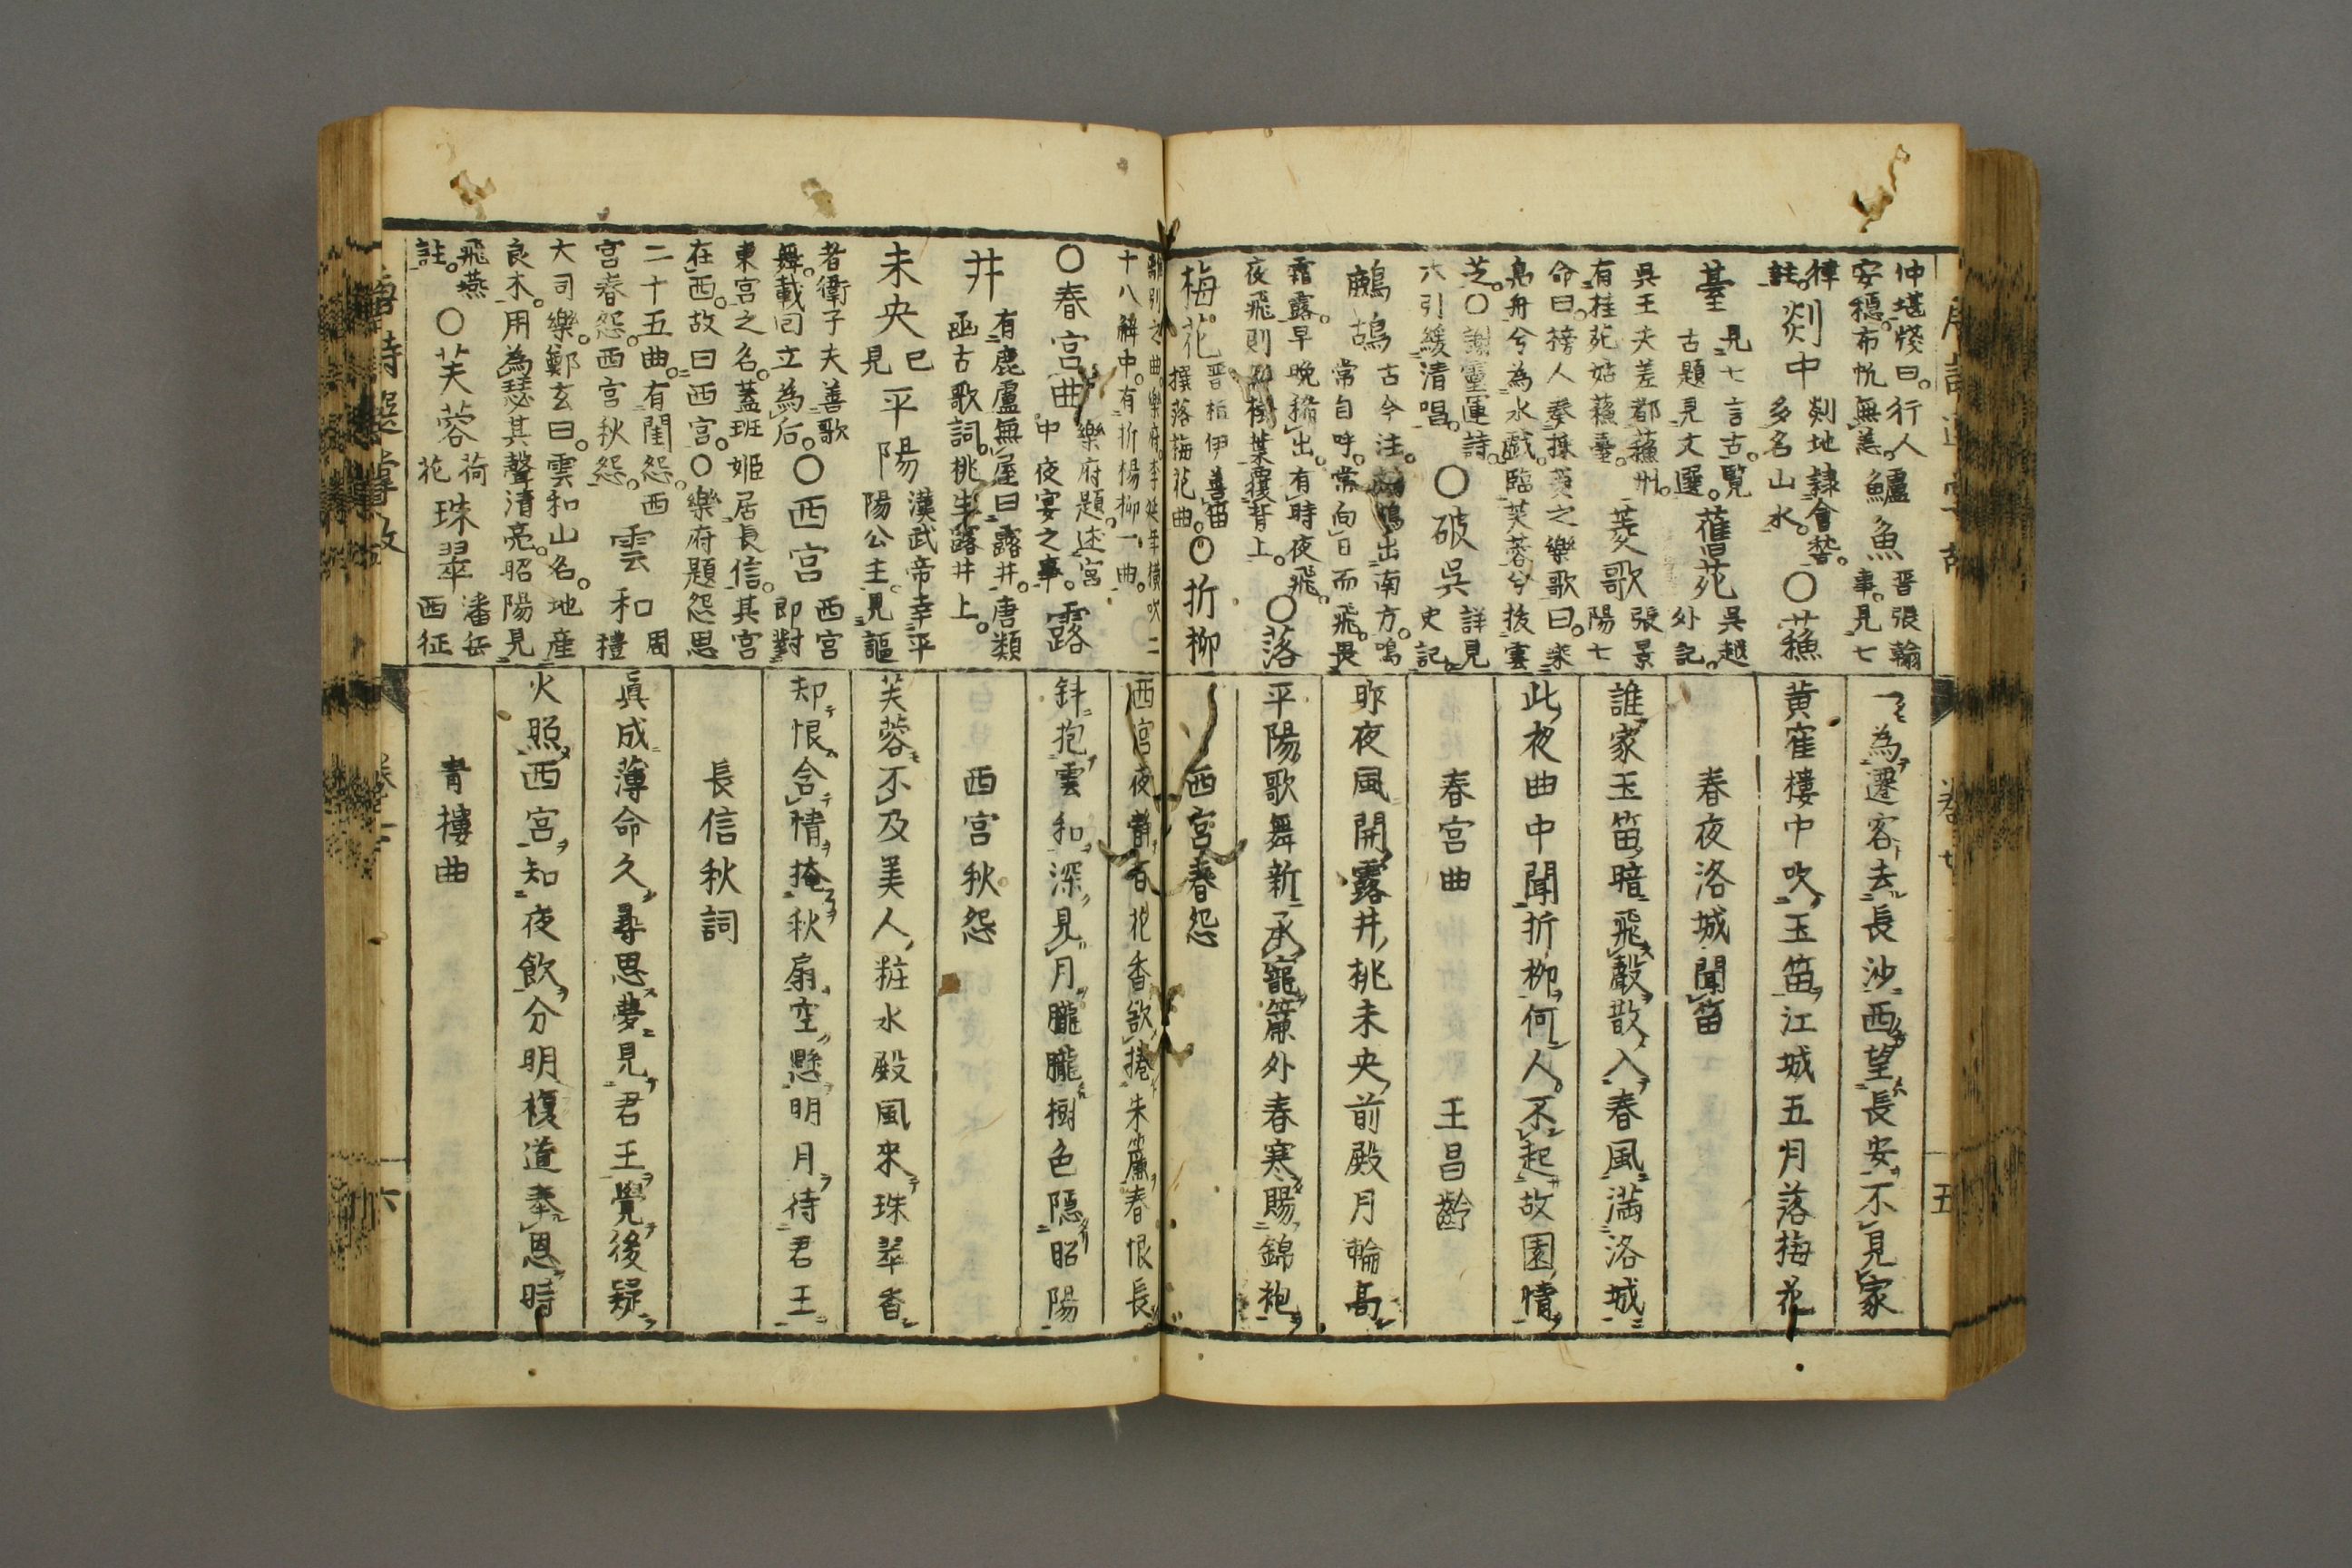 仲堪牋曰。行人
安穩。布帆無恙。
鱸魚
晋張翰
事。見七
律
註。
剡中
剡地隷會
多名山水。
○蘓
臺
見七言古。覽
古題見文選。
舊苑
呉越
外記。
呉王夫差都蘓州。
有桂苑姑蘓臺。
菱歌
張景
陽七
命曰。榜人奏採菱之樂歌曰。乘
鳬舟兮為水戯。臨芙蓉兮拔雲
芝。○謝靈運詩。
六引緩清唱。
○破呉
詳見
史記。
鷓鴣
古今注。出南方。鳴
常自呼。常向日而飛。畏
霜露。早晩稀出。有時夜飛。
夜飛則樹葉覆背上。
○落
梅花
晋桓伊善笛
撰落梅花曲。
○折柳
一為遷客去長沙西望長安不見家
黄寉樓中吹玉笛江城五月落梅花
春夜洛城聞笛
誰家玉笛暗飛聲散入春風滿洛城
此夜曲中聞折柳何人不起故園情
春宮曲 王昌齡
昨夜風開露井桃未央前殿月輪高
平陽歌舞新承寵簾外春寒賜錦袍
西宮春怨
五
離別之曲。樂府。李延年橫吹二
十八解中。有折楊柳一曲。
○春宮曲
樂府題。述宮
中夜宴之事。
露
井
有鹿盧無屋曰露井。唐類
函古歌詞。桃生露井上。
未央
已
見
平陽
漢武帝幸平
陽公主。見謳
者衛子夫善歌
舞。載回立為后。
○西宮
西宮
即對
東宮之名。蓋班姬居長信。其宮
在西。故曰西宮。○樂府題怨思
二十五曲。有閨怨。西
宮春怨。西宮秋怨。
雲和
周
禮
大司樂。鄭玄曰。雲和山名。地産
良木。用為瑟其聲清亮。昭陽見
飛燕
註。
○芙蓉
荷
花
珠翠
潘岳
西征
西宮夜靜百花香欲捲朱簾春恨長
斜抱雲和深見月朧朧樹色隱昭陽
西宮秋怨
芙蓉不及美人粧水殿風來珠翠香
却恨含情掩秋扇空懸明月待君王
長信秋詞
眞成薄命久尋思夢見君王覺後疑
火照西宮知夜飲分明複道奉恩時
青樓曲
六